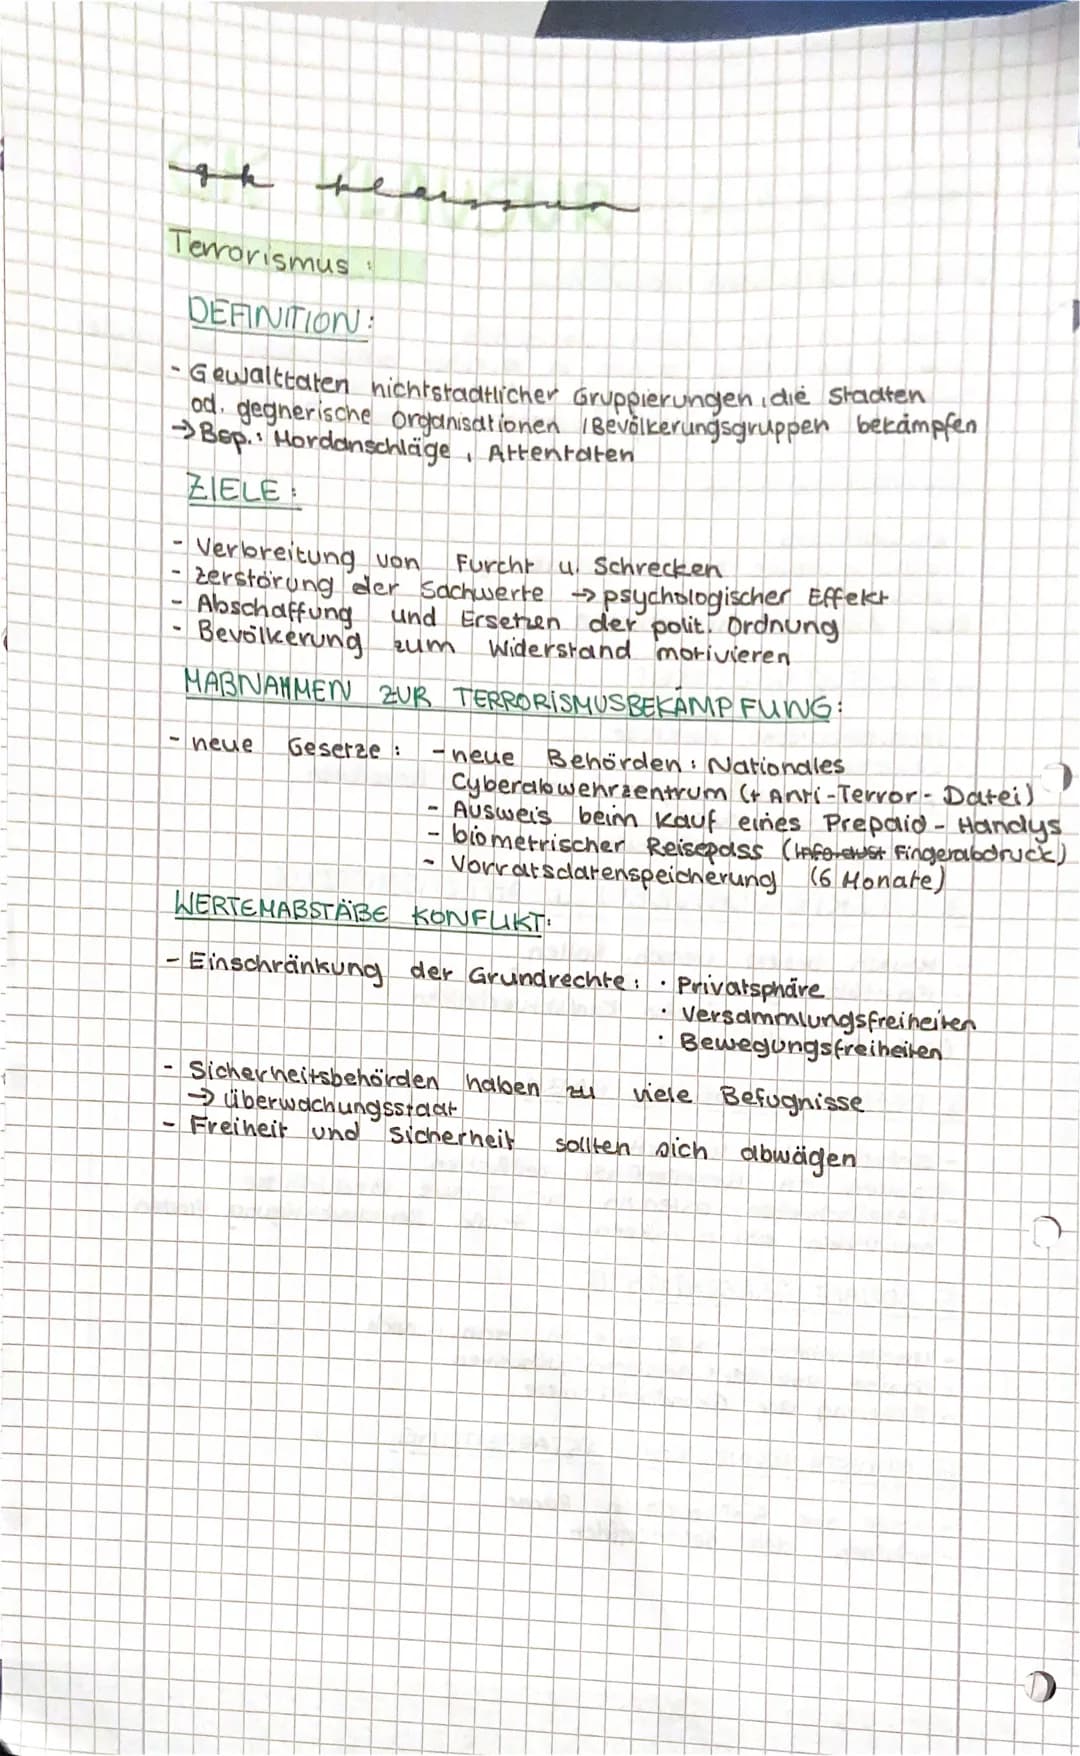 gk klausur
Terrorismus :
DEFINITION :
- Gewalttaten nichtstaatlicher Gruppierungen, die Staaten
od. gegnerische Organisationen / Bevölkerungsgruppen bekämpfen
→ Bsp.: Mordanschläge, Attentaten
ZIELE :
- Verbreitung von Furcht u. Schrecken
- Zerstörung der Sachwerte → psychologischer Effekt
- Abschaffung und Ersetzen der polit. Ordnung
- Bevölkerung zum Widerstand motivieren
MAßNAHMEN ZUR TERRORISMUSBEKÄMPFUNG:
- neue Gesetze : - neue Behörden : Nationales
Cyberabwehrzentrum (+ Anti-Terror-Datei)
- Ausweis beim Kauf eines Prepaid-Handys
- biometrischer Reisepass (Fingerabdruck)
- Vorratsdatenspeicherung (6 Monate)
WERTEMAßSTÄBE KONFLIKT:
- Einschränkung der Grundrechte : · Privatsphäre
· Versammlungsfreiheiten
· Bewegungsfreiheiten
- Sicherheitsbehörden haben zu viele Befugnisse
→ Überwachungsstaat
- Freiheit und Sicherheit sollten sich abwägen